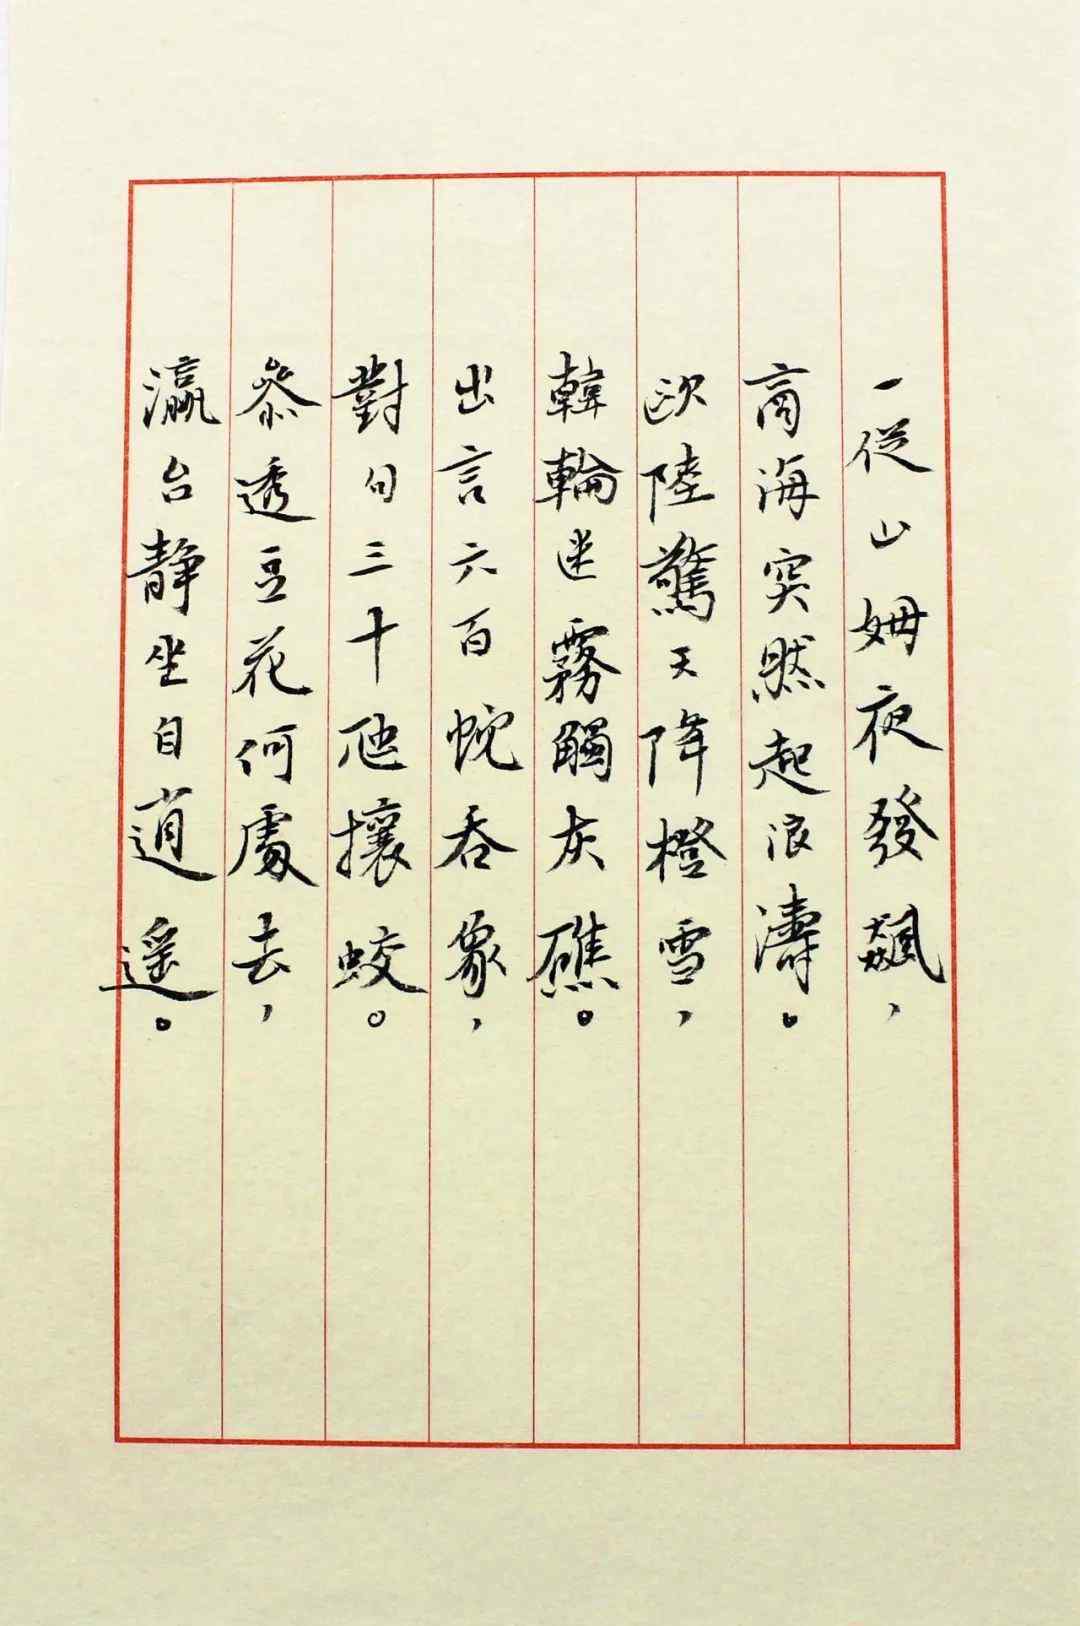 一從山姆夜發飆，
商海突然起浪濤。
欧陸驚天降橙雪，
韓輪迷霧觸灰礁。
出言六百蛇吞象，
對句三十虺攘蛟。
參透豆花何處去，
瀛台静坐自逍遥。